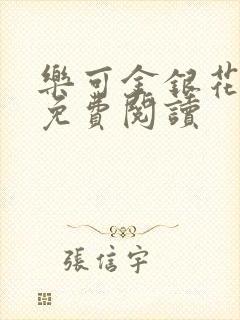 樂可金銀花
免費閱讀
張信宇